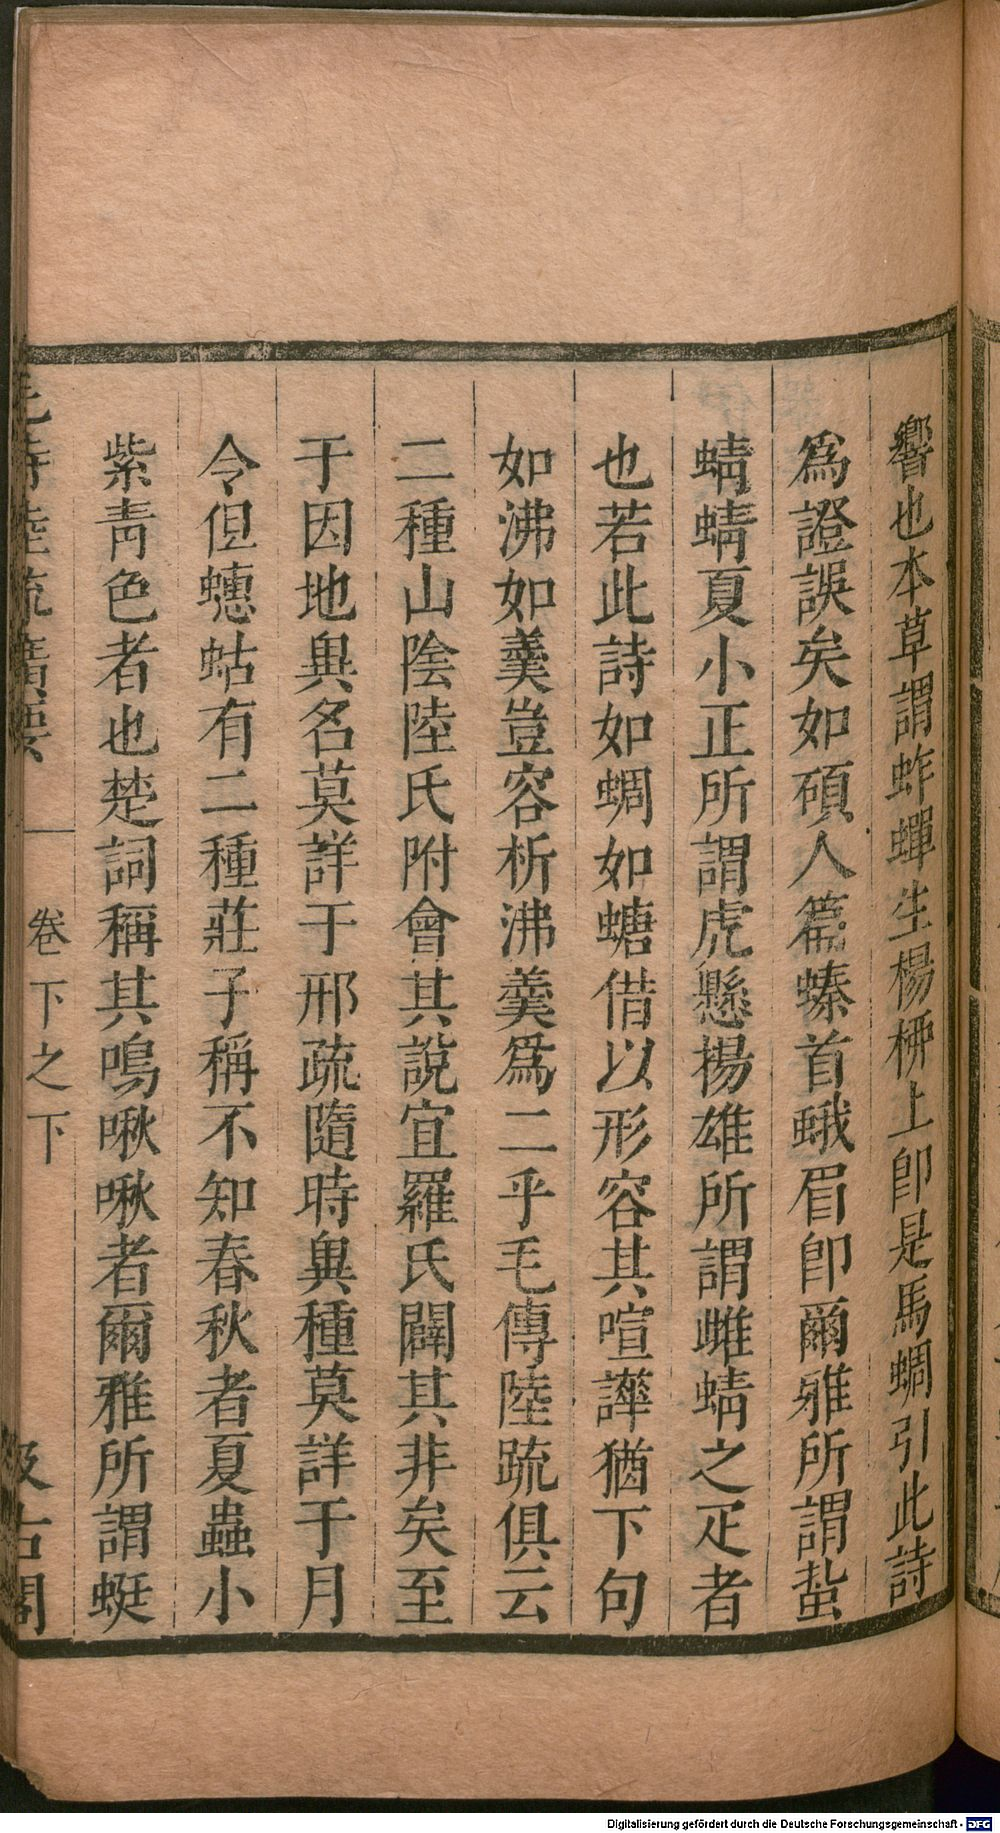 響也本草謂蚱蟬生楊栁上卽是馬蜩引此詩
爲證誤矣如碩人篇螓首蛾眉卽爾雅所謂蚻
蜻蜻夏小正所謂虎懸楊雄所謂雌蜻之疋者
也若此詩如蜩如螗借以形容其喧譁猶下句
如沸如羹豈容析沸羹爲二乎毛傳陸疏俱云
二種山陰陸氏附會其說宜羅氏闢其非矣至
于因地異名莫詳于邢疏隨時異種莫詳于月
令但蟪蛄有二種莊子稱不知春秋者夏蟲小
紫靑色者也楚詞稱其鳴啾啾者爾雅所謂蜓
毛詩陸疏廣要
卷下之下
汲古閣
Digitalisierung gefördert durch die Deutsche Forschungsgemeinschaft - DFG